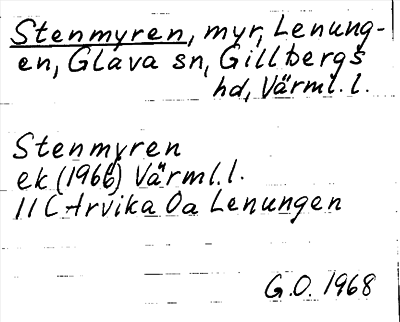 Stenmyren, myr, Lenung-
en, Glava sn, Gillbergs
hd, Värml. l.
Stenmyren
ek (1966) Värml. l.
11 C Arvika 0a Lenungen
G.O. 1968